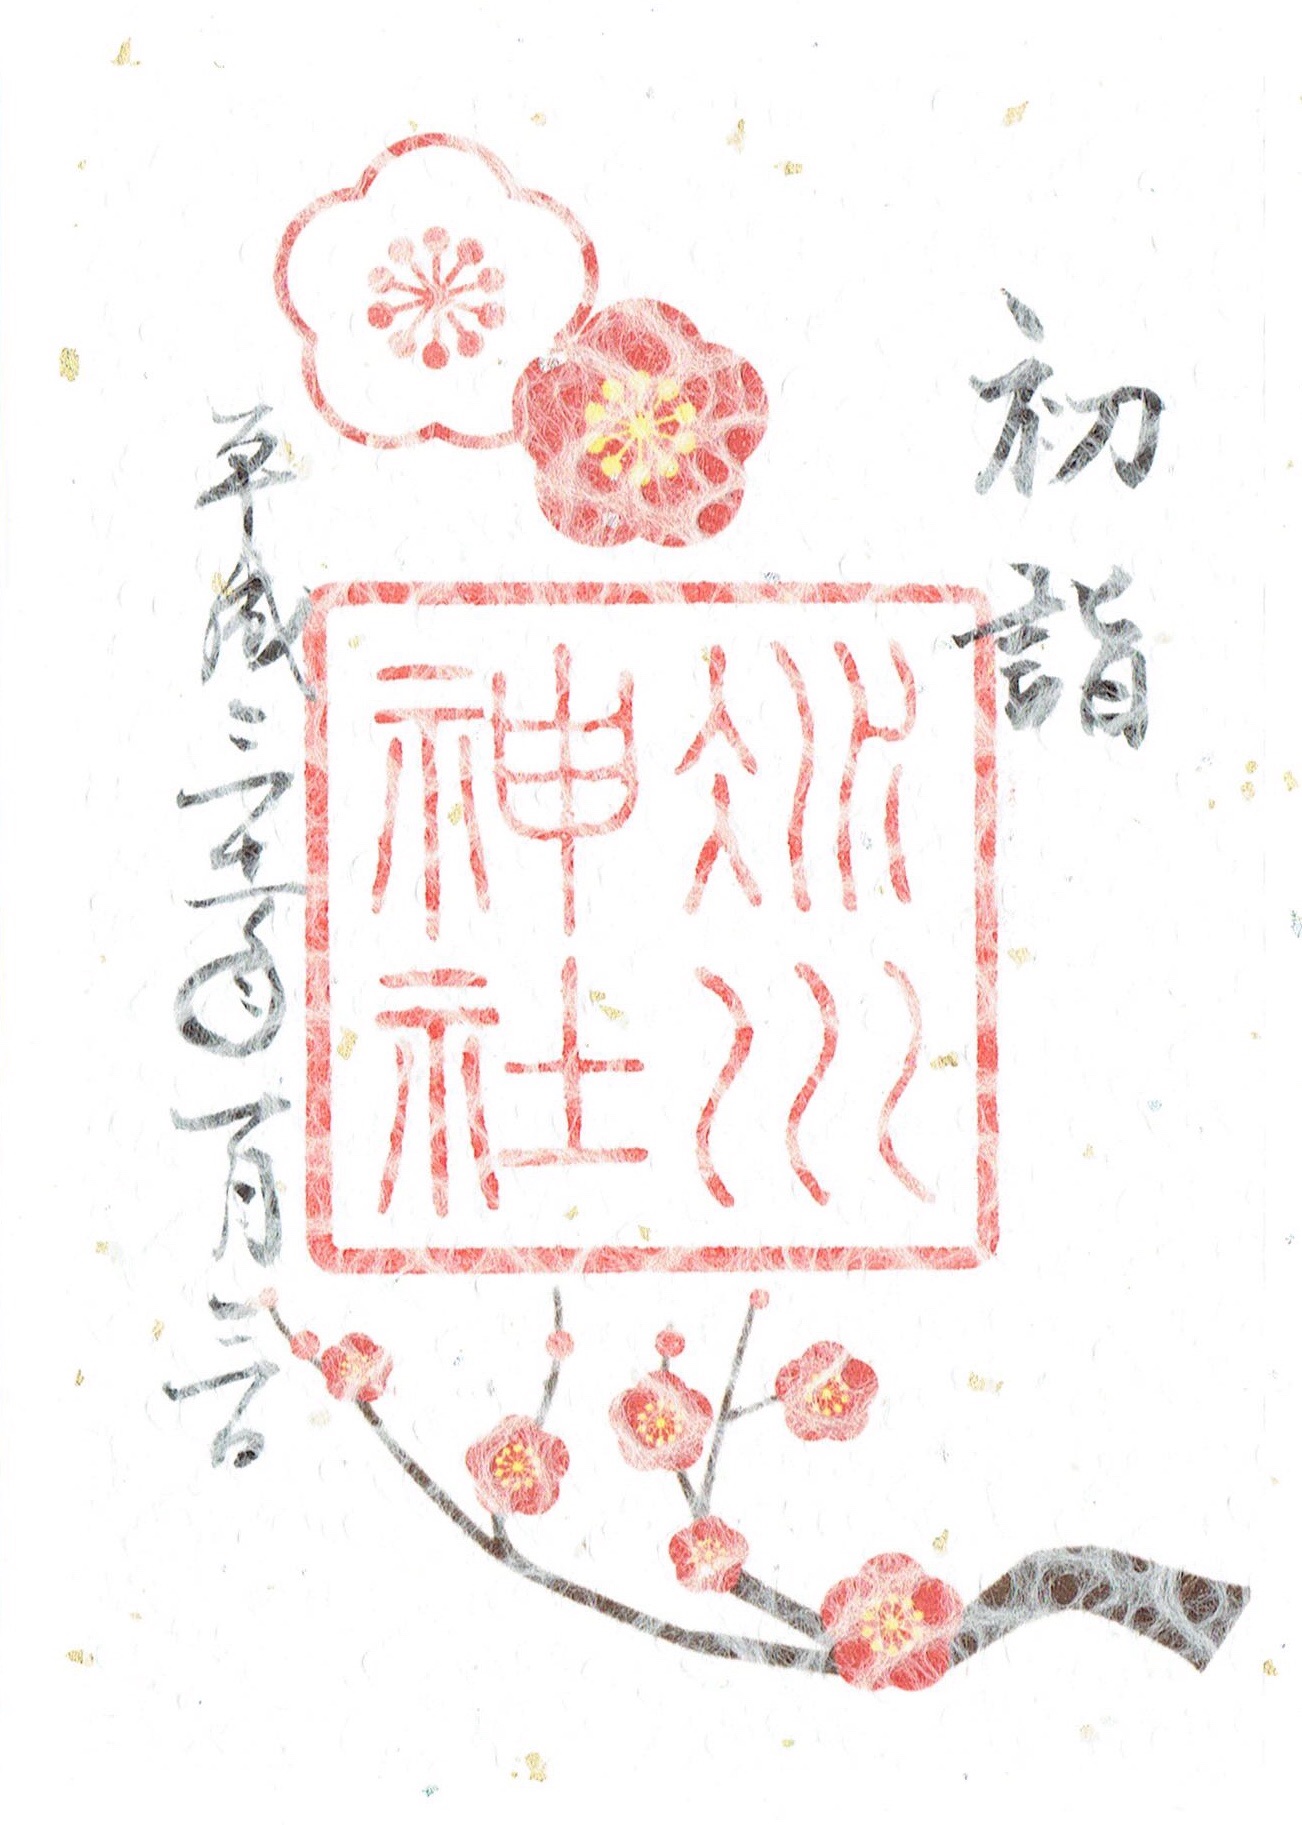 初詣
冰川
神社
平成三十一年一月三日